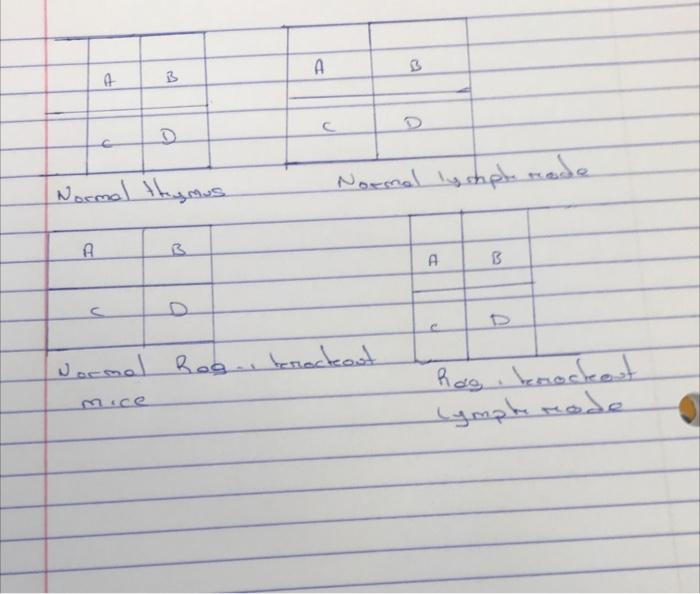 A B A B
C D C D
Normal thymus Normal lymph node
A B A B
C D C D
Normal Rag-1 knockout Rag-1 knockout
mice lymph node